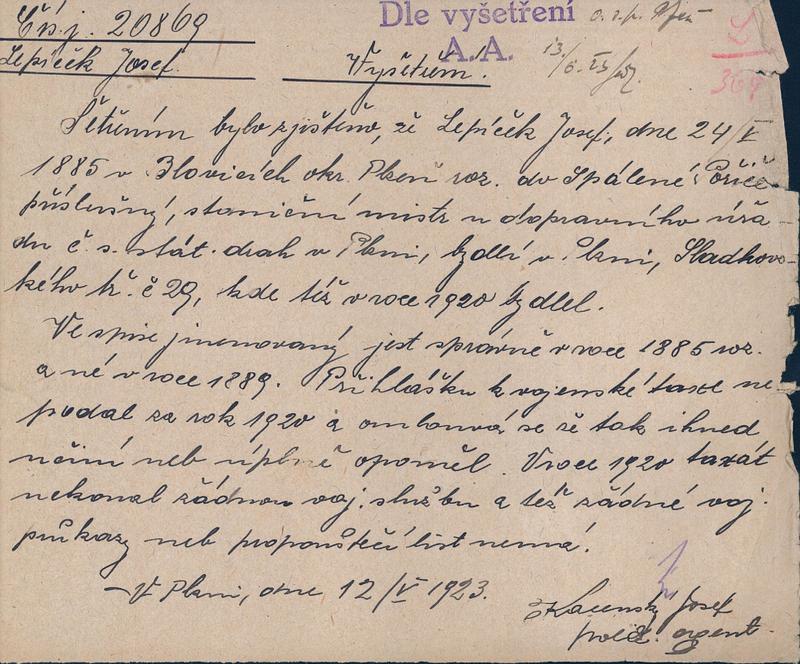 Čís. j. 20869
Dle vyšetření
A. A.
13/6. 23
L
364
Lepíček Josef.
Vyšetřím.
Šetřením bylo zjištěno, že Lepíček Josef, dne 24/V
1885 v Blovicích okr. Plzeň roz. do Spálené Poříčí
příslušný, staniční mistr u dopravního úřa-
du č. s. stát. drah v Plzni, bydlí v Plzni, Sladkovs-
kého tř. č 29, kde též v roce 1920 bydlel.
Ve spise jmenovaný jest správně v roce 1885 roz.
a né v roce 1889. Přihlášku k vojenské taxe ne
podal za rok 1920 a omlouvá se že tak ihned
učiní neb úplně opoměl. V roce 1920 taxát
nekonal žádnou voj. službu a též žádné voj.
průkazy neb propouštěcí list nemá.
– V Plzni, dne 12/V 1923.
Josef
polic. agent.